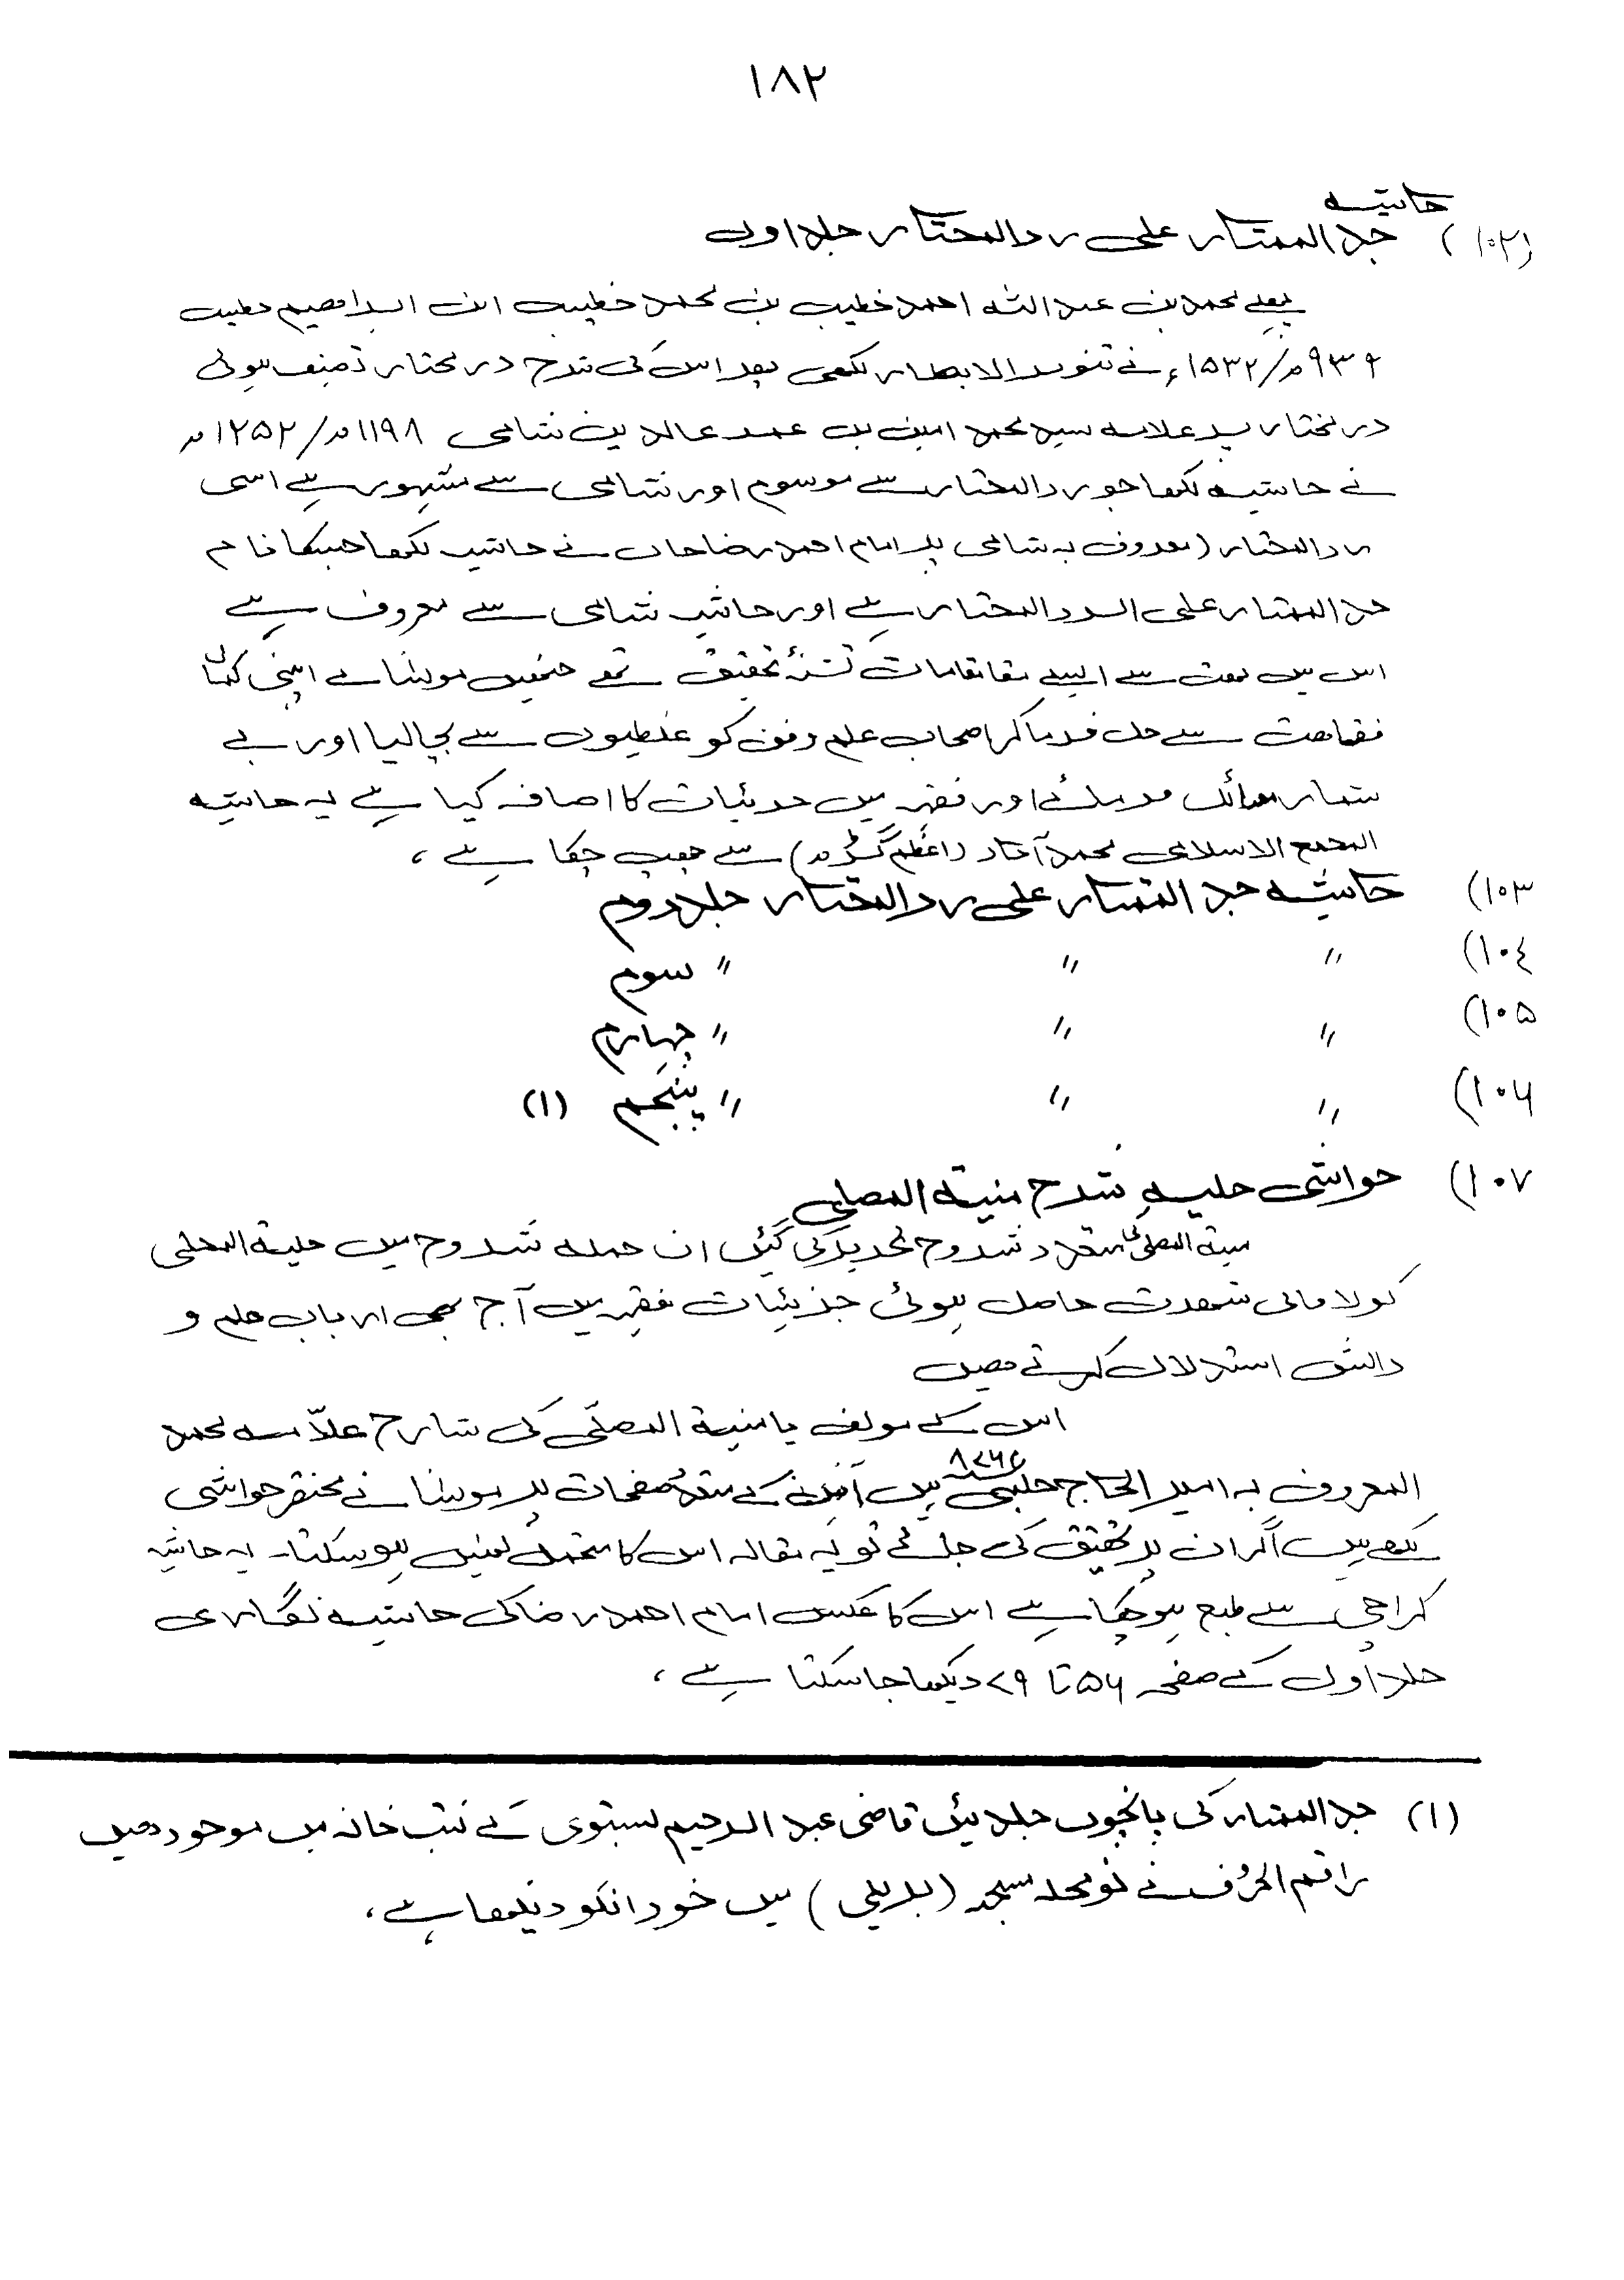 ۱۸۲
حاشیہ
۱۰۲) جد الممتار علی رد المحتار جلد اول
پہلے محمد بن عبد اللہ احمد خطیب بن محمد خطیب ابن ابراھیم خطیب
۹۳۹ھ/۱۵۳۲ء نے تنویر الابصار لکھی پھر اس کی شرح در مختار تصنیف ہوئی
در مختار پر علامہ سید محمد امین بن عمر عابدین شامی ۱۱۹۸ھ/۱۲۵۲ھ
نے حاشیہ لکھا جو رد المختار سے موسوم اور شامی سے مشہور ہے اسی
رد المختار (معروف بہ شامی پر امام احمد رضا خاں نے حاشیہ لکھا جسکا نام
جد الممتار علی الرد المختار ہے اور حاشیہ شامی سے معروف ہے
اس میں بہت سے ایسے مقامات تشنۂ تحقیق تھے جنھیں مولینا نے اپنی کمال
فقاہت سے حل فرما کر اصحاب علم و فن کو غلطیوں سے بچا لیا اور بے
شمار مسائل مدللے اور فقہ میں جزئیات کا اضافہ کیا ہے یہ حاشیہ
المجمع الاسلامی محمد آباد (اعظم گڑھ) سے چھپ چکا ہے ،
۱۰۳) حاشیہ جد الممتار علی رد المختار جلد دوم
۱۰۴) ״ ״ ״ سوم
۱۰۵) ״ ״ ״ چہارم
۱۰۶) ״ ״ ״ پنجم (۱)
۱۰۷) حواشی حلیہ شرح منیۃ المصلی
منیۃ المصلی کی متعدد شروح تحریر کی گئیں ان جملہ شروح میں حلیۃ المحلی
کو لافانی شھرت حاصل ہوئی جزئیات فقہ میں آج بھی ارباب علم و
دانش استدلال کرتے ھیں
اس کے مولف یا منیۃ المصلّی کی شارح علاّمہ محمد
المعروف بہ امیر الحاج حلبی ۸۷۹ھ ہیں کے صفحات پر مولینا نے مختصر حواشی
لکھے ہیں اگر ان پر تحقیق کی جائے تو یہ مقالہ اس کا متحمل نہیں ہوسکتا۔ یہ حاشیہ
کراچی سے طبع ہوچکا ہے اس کا عکس امام احمد رضا کی حاشیہ نگاری
جلد اول کے صفحہ ۵۶ تا ۷۹ دیکھا جاسکتا ہے ،
(۱) جد الممتار کی پانچوں جلدیں قاضی عبد الرحیم بستوی کے کتب خانہ میں موجود ھیں
راقم الحرُف نے نومحلہ مسجد (بریلی) میں خود انکو دیکھا ہے ،